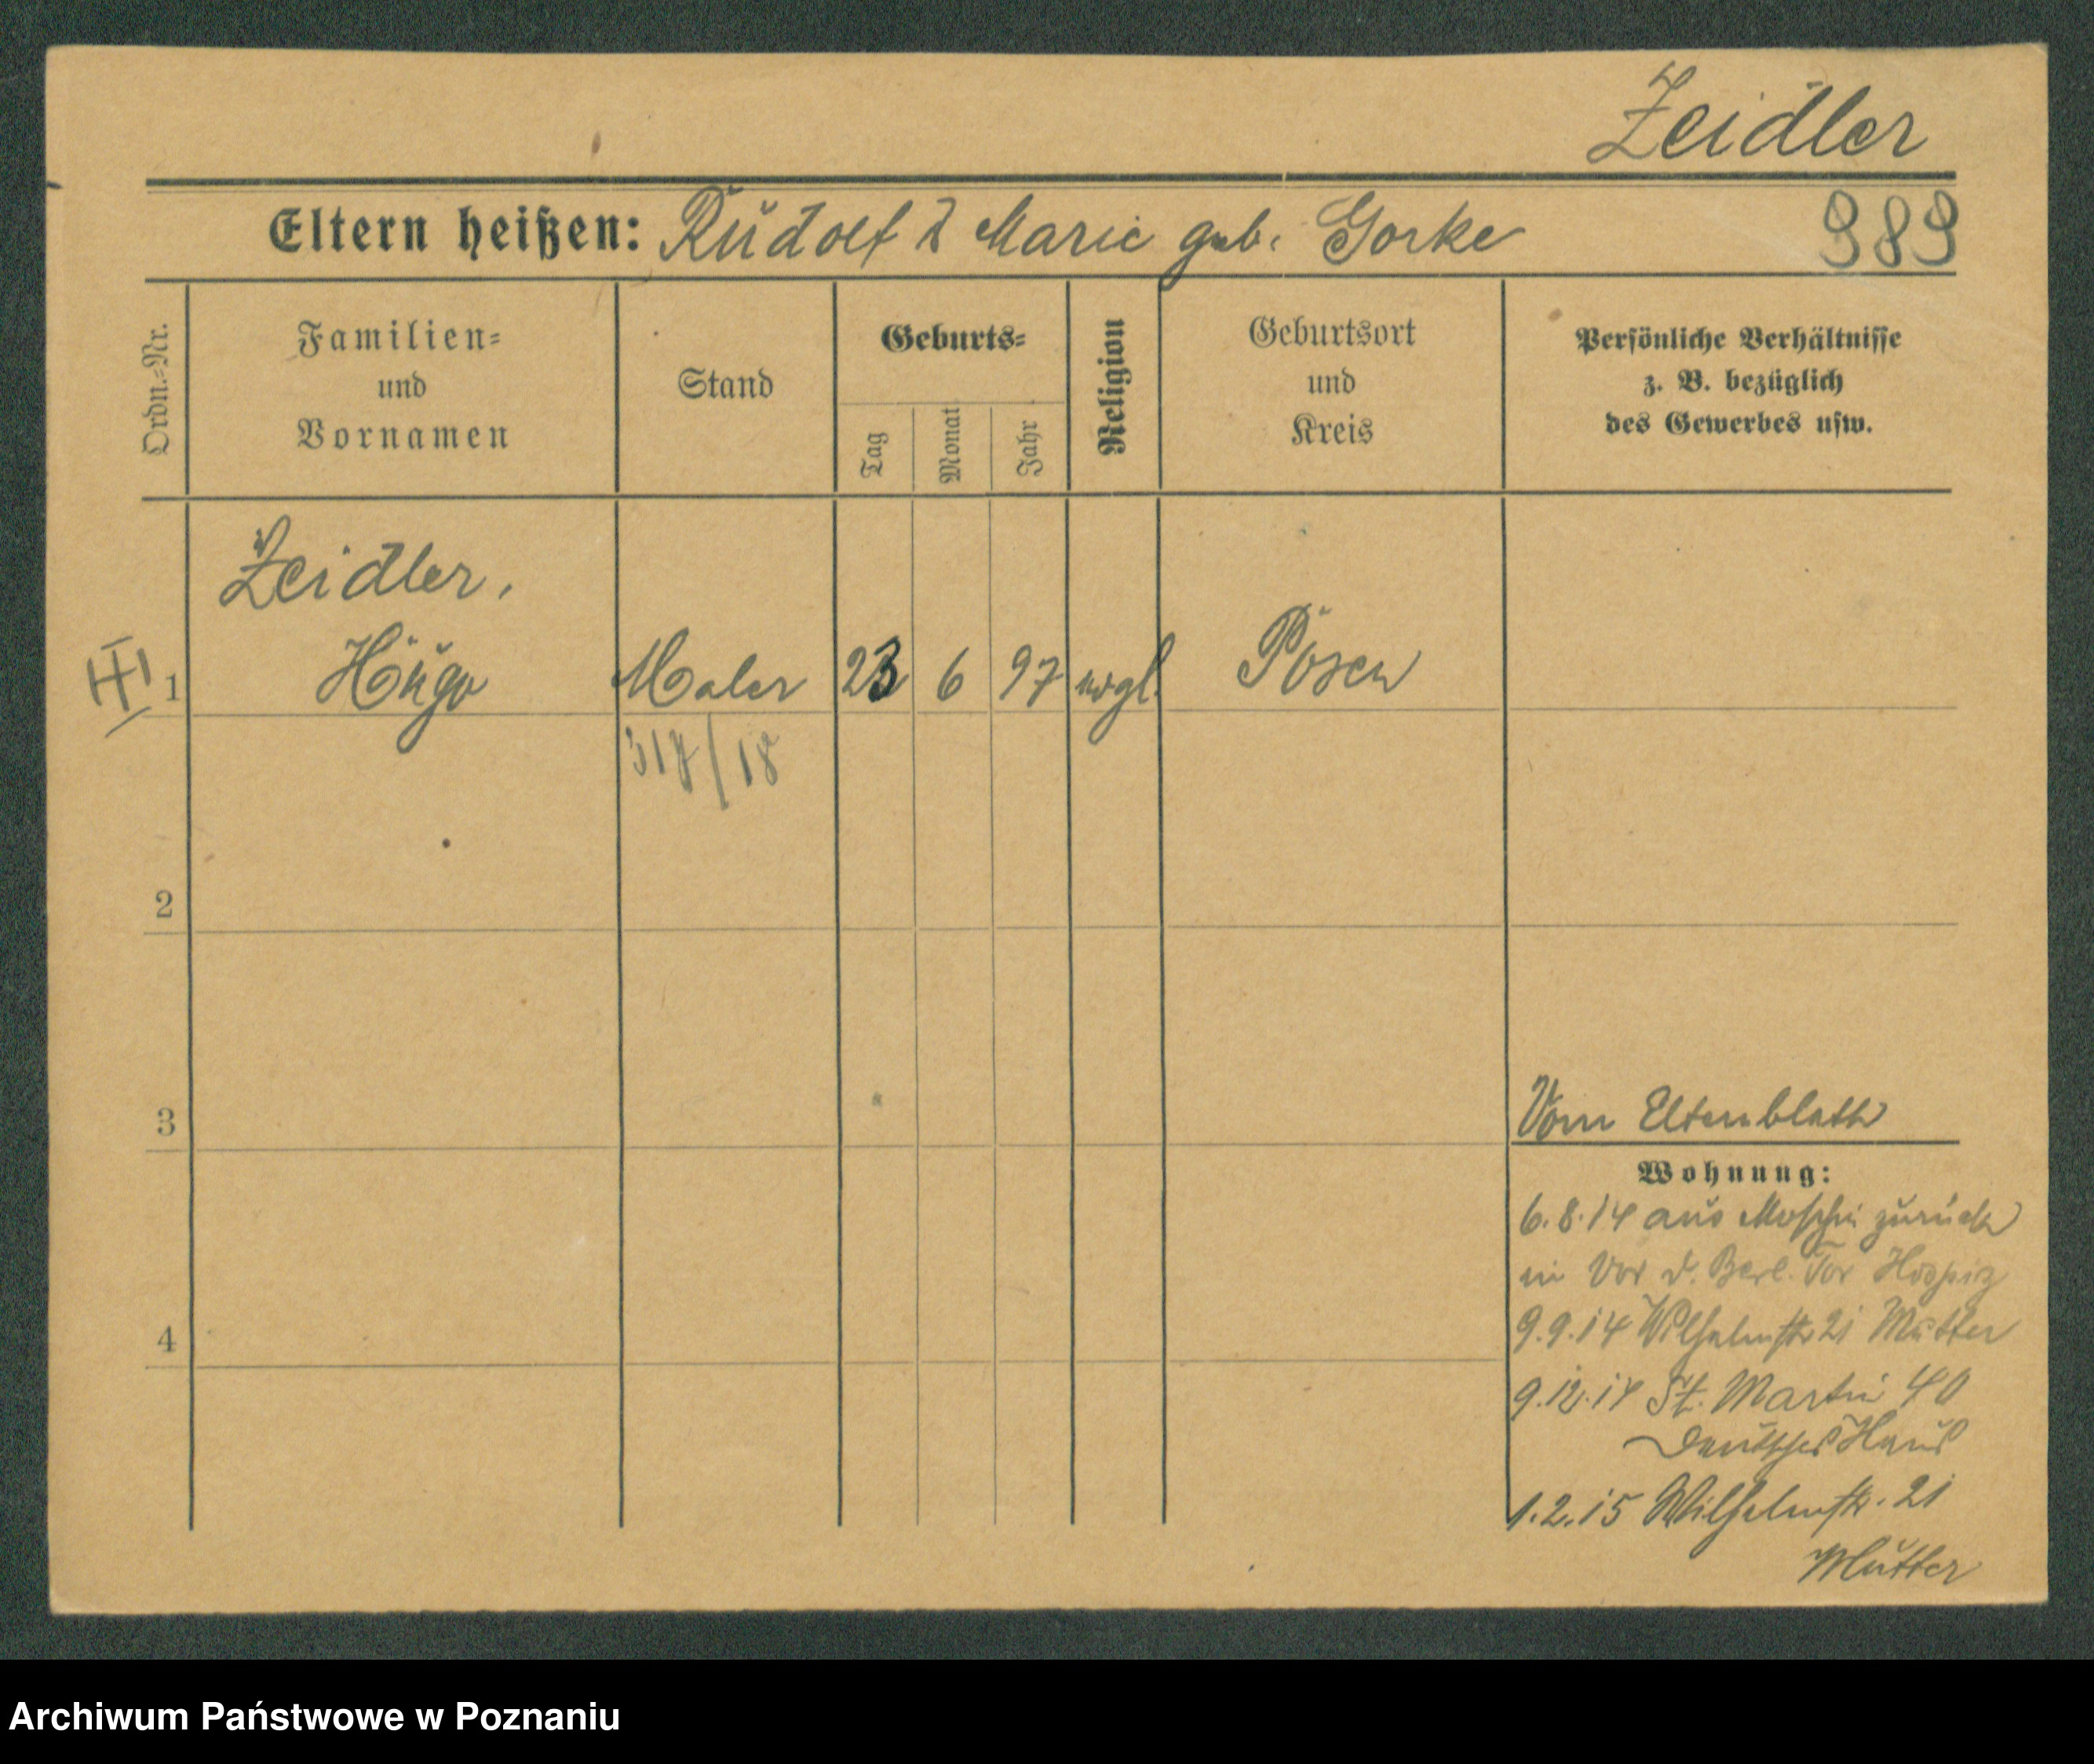 Zeidler
Eltern heißen: Rudolf & Marie geb. Gorke 989
Ordn.=Nr.
Familien=
und
Vornamen
Stand
Geburts=
Tag
Monat
Jahr
Religion
Geburtsort
und
Kreis
Persönliche Verhältnisse
z. B. bezüglich
des Gewerbes usw.
Zeidler,
III 1 Hugo Maler 23 6 97 evgl. Posen
318/18
2
3
Vom Elternblatt
Wohnung:
6.8.14 aus Moschin zurück
in Vor d. Berl. Tor Hospiz
4
9.9.14 Wilhelmstr 21 Mutter
9.12.14 St. Martin 40
Deutsches Haus
1.2.15 Wilhelmstr. 21
Mutter
Archiwum Państwowe w Poznaniu